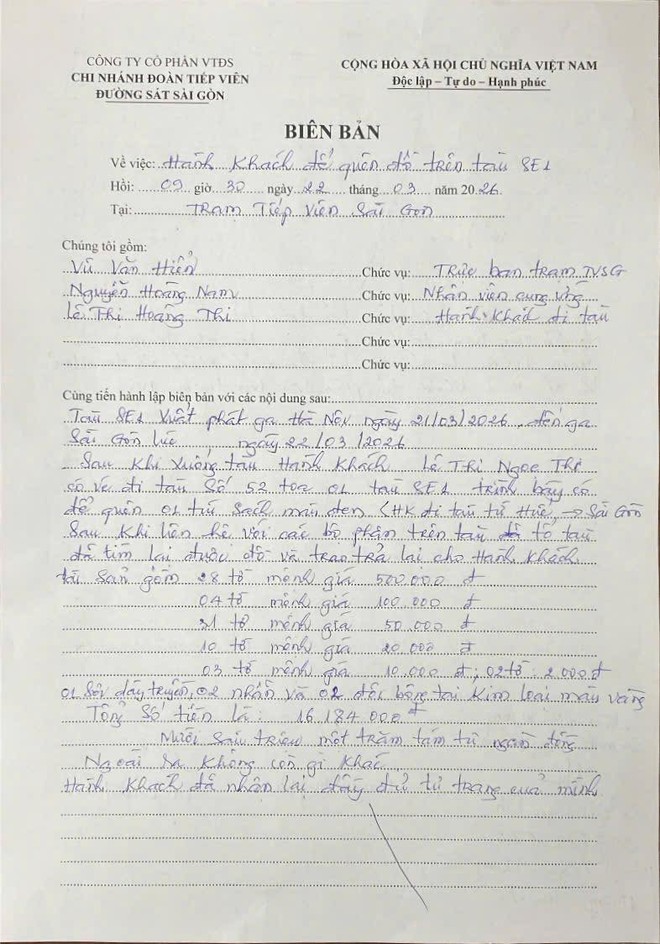 CÔNG TY CỔ PHẦN VTĐS
CHI NHÁNH ĐOÀN TIẾP VIÊN
ĐƯỜNG SẮT SÀI GÒN
CỘNG HÒA XÃ HỘI CHỦ NGHĨA VIỆT NAM
Độc lập – Tự do – Hạnh phúc
BIÊN BẢN
Về việc: Hành Khách để quên đồ trên tàu SE1
Hồi: 09 giờ 30 ngày 22 tháng 03 năm 2026
Tại: Trạm Tiếp Viên Sài Gòn
Chúng tôi gồm:
Vũ Văn Hiển Chức vụ: Trực ban trạm TVSG
Nguyễn Hoàng Nam Chức vụ: Nhân viên cung ứng
Lê Thị Hoàng Thi Chức vụ: Hành Khách đi tàu
Chức vụ:
Chức vụ:
Cùng tiến hành lập biên bản với các nội dung sau:
Tàu SE1 xuất phát ga Hà Nội ngày 21/03/2026 đến ga
Sài Gòn lúc ngày 22/03/2026
Sau khi xuống tàu Hành Khách Lê Thị Ngọc
có vé đi tàu số 52 toa 01 tàu SE1 trình bày có
để quên 01 túi sách màu đen (HK đi tàu từ Huế → Sài Gòn
Sau khi liên hệ với các bộ phận trên tàu tổ tàu
đã tìm lại được đồ và trao trả lại cho Hành Khách
tài sản gồm 28 tờ mệnh giá 500.000 đ
04 tờ mệnh giá 100.000 đ
31 tờ mệnh giá 50.000 đ
10 tờ mệnh giá 20.000 đ
03 tờ mệnh giá 10.000 đ; 02 tờ: 2.000 đ
01 sợi dây truyền, 02 nhẫn và 02 đôi bông tai kim loại màu vàng
Tổng số tiền là: 16.184.000 đ
Mười sáu triệu một trăm tám tư ngàn đồng
Ngoài ra không còn gì khác
Hành Khách đã nhận lại đầy đủ tư trang của mình